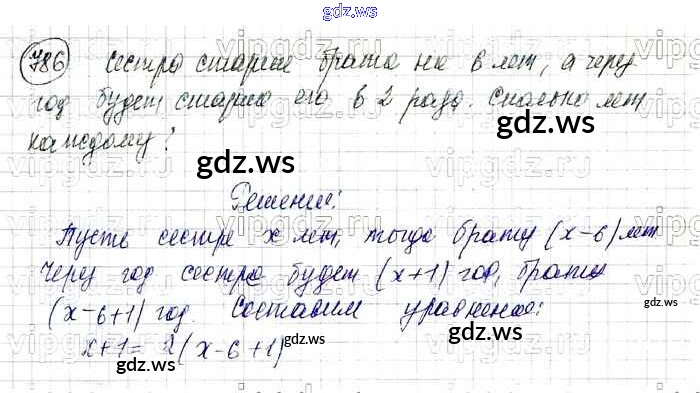 gdz.ws
786 Сестра старше брата на 6 лет, а через
год будет старше его в 2 раза. Сколько лет
каждому?
gdz.ws
Решение:
Пусть сестре x лет, тогда брату (x-6) лет
Через год сестре будет (x+1) год, брату
(x-6+1) год Составим уравнение:
x+1=2(x-6+1)
gdz.ws
gdz.ws
gdz.ws
vipgdz.ru